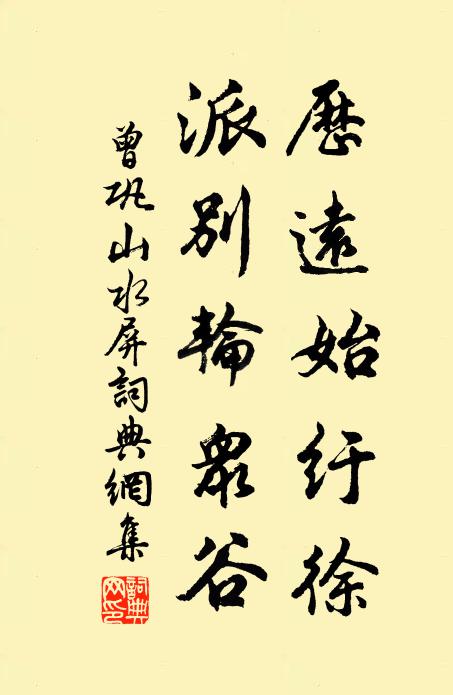 歷遠始紆徐
派別輪衆谷
曾巩山水屏詞典網集
詞典网印